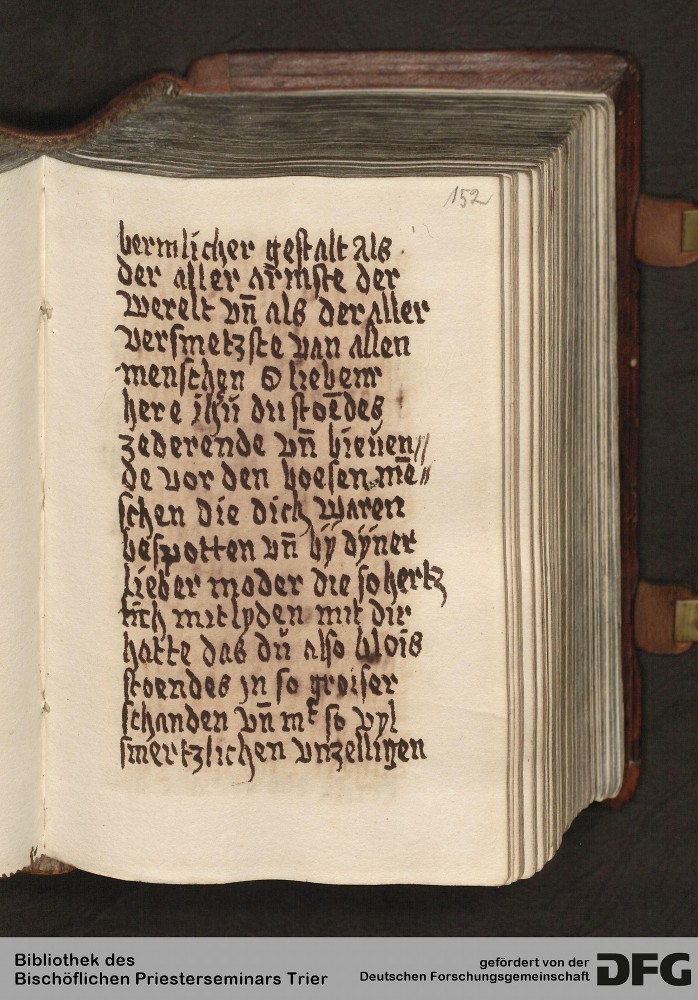 152
bermlicher gestalt als
der aller armste der
werelt vn̄ als der aller
versmetzste van allen
menschen O lieber
here ihū du stoēdes
zederende vn̄ bieuen//
de vor den boesen mē//
schen die dich waren
bespotten vn̄ by dyner
lieber moder die so hertz
lich mitlyden mit dir
hatte das du also blois
stoendes jn so groiser
schanden vn̄ mt so vyl
smertzlichen vnzelligen
Bibliothek des
Bischöflichen Priesterseminars Trier
gefördert von der
Deutschen Forschungsgemeinschaft
DFG